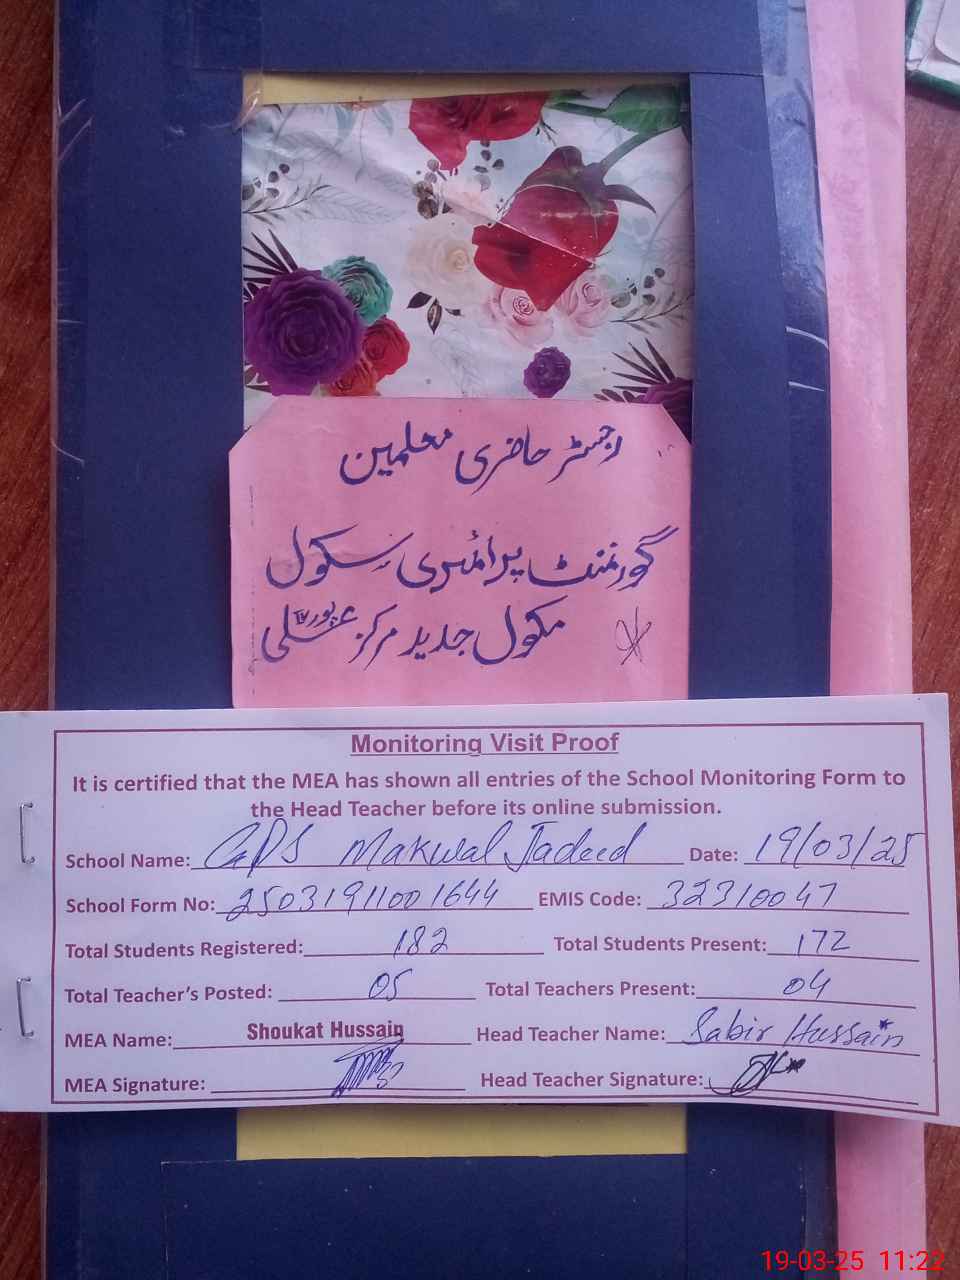 رجسٹر حاضری معلمین
گورنمنٹ پرائمری سکول
مکول جدید مرکز علی پور IV
Monitoring Visit Proof
It is certified that the MEA has shown all entries of the School Monitoring Form to
the Head Teacher before its online submission.
School Name: GPS Makwal Jadeed Date: 19/03/25
School Form No: 25031911001644 EMIS Code: 32310047
Total Students Registered: 182 Total Students Present: 172
Total Teacher's Posted: 05 Total Teachers Present: 04
MEA Name: Shoukat Hussain Head Teacher Name: Sabir Hussain
MEA Signature: Head Teacher Signature:
19-03-25 11:22